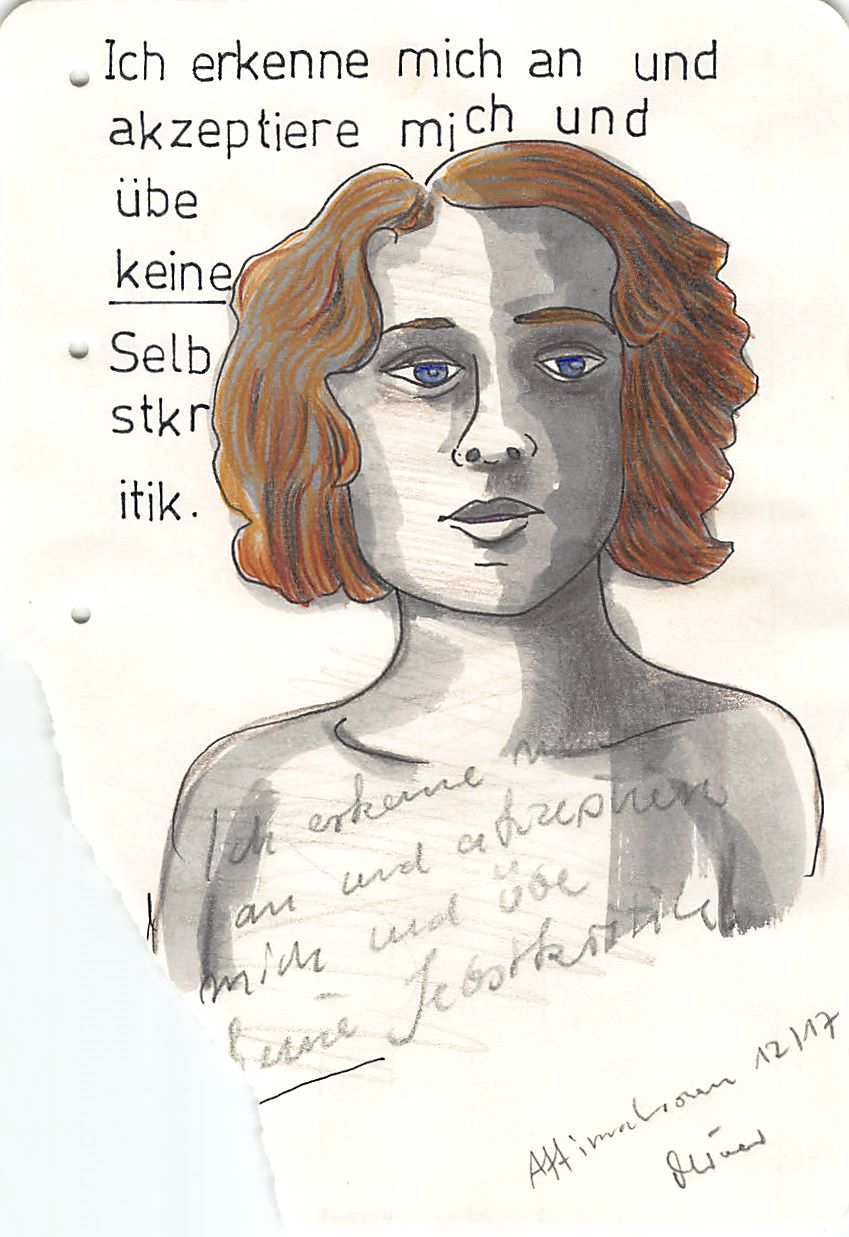 Ich erkenne mich an und
akzeptiere mich und
übe
keine
Selb
stkr
itik.
Ich erkenne
an und akzeptiere
mich und übe
keine Selbstkritik
Affirmationen 12/17